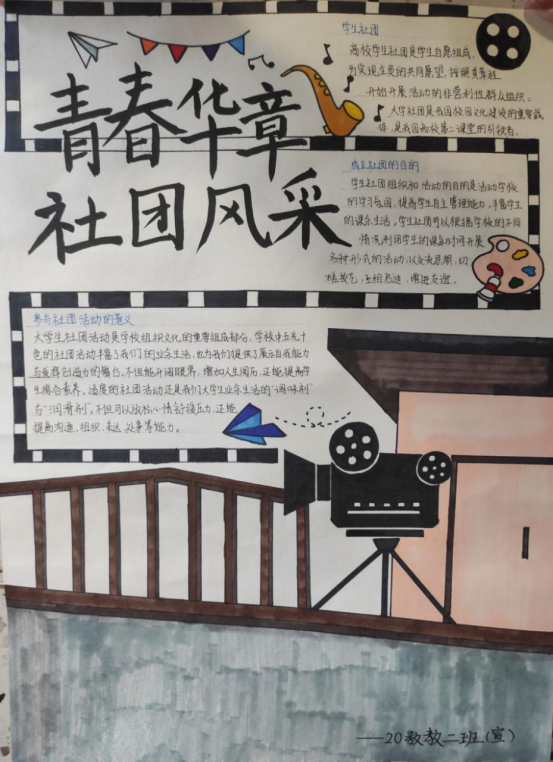 青春华章
社团风采
学生社团
高校学生社团是学生自愿组成,
为实现会员的共同愿望,按照其章程
开始开展活动的非营利性群众组织。
大学社团是我国校园文化建设的重要载
体,是我国高校第二课堂的引领者。
成立社团的目的
学生社团组织和活动的目的是活跃学校
的学习氛围,提高学生自主管理能力,丰富学生
的课余生活。学生社团可以根据学校的不同
情况利用学生的课余时间开展
多种形式的活动,以交流思想,切
磋技艺,互相启迪,增进友谊。
参与社团活动的意义
大学生社团活动是学校组织文化的重要组成部分,学校中五光十
色的社团活动丰富了我们的业余生活,也为我们提供了展示自我能力
与发挥创造力的舞台,不但能开阔眼界,增加人生阅历,还能提高学
生综合素养。适度的社团活动还是我们大学生业余生活的“调味剂”
与“润滑剂”。不但可以放松心情舒缓压力,还能
提高沟通,组织,表达,处事等能力。
——20数教二班(宣)